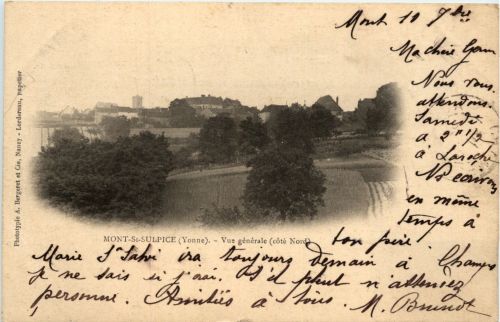 Mont 10 7bre
Ma chère
Nous vous
attendons
Samedi
a 2h 1/2
à Laroche
écrivez
en même
temps à
ton père.
Phototypie A. Bergeret et Cie, Nancy - Lordereau, papetier
MONT-St-SULPICE (Yonne). - Vue générale (côté Nord)
Marie ira toujours Demain à Champs
je ne sais si j'irai. S'il pleut n'attendez
personne. Amitiés à tous. M.